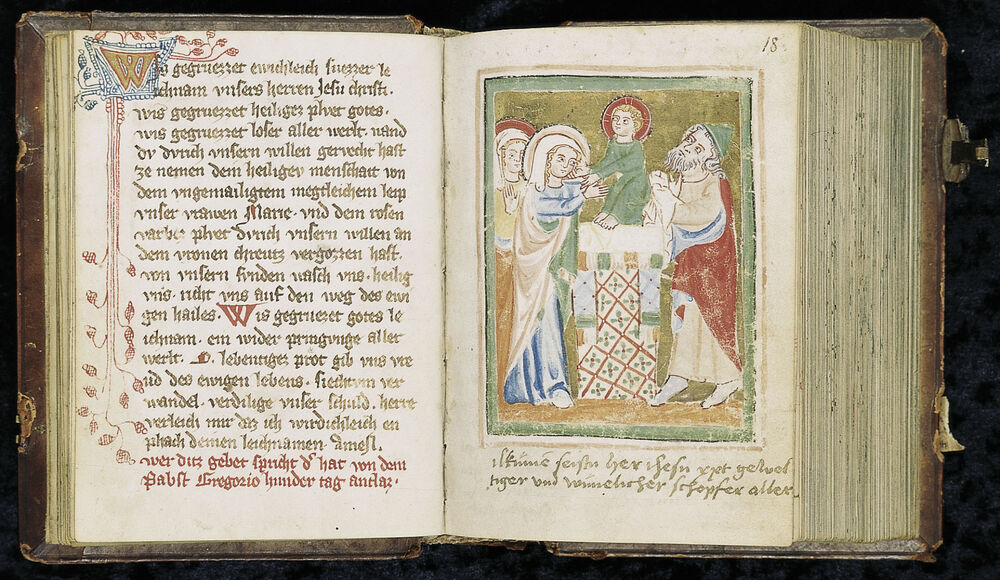 Wis gegruezzet ewichleich suezzer le
ichnam vnsers herren Jesu christi.
wis gegruezzet heiliges plvet gotes.
wis gegruezzet loser aller werlt. vand
dv dvrich vnsern willen gervecht hast
ze nemen dem heiligev menschait von
dem vngemailigtem megtleichem leip
vnser vrawen Marie. vnd dem rosen
varbez plvet dvrich vnsern willen an
dem vronen chreutz vergozzen hast.
von vnsern svnden wasch vns. heilig
vns. richt vns auf den weg des ewi
gen hailes. Wis gegruezet gotes le
ichnam. ein wider pringvnge aller
werlt. O. lebentigez prot gib vns vre
ud des ewigen lebens. siechtvm ver
wandel. verdilige vnser schuld. herre
verleich mir daz ich wirdichleich en
phach deinen leichnamen. amen.
wer ditz gebet spricht der hat von dem
Pabst Gregorio hunder tag antlaz.
18
ilkume seistu her ihesu xpt gewel
tiger vnd wunelicher schopfer aller